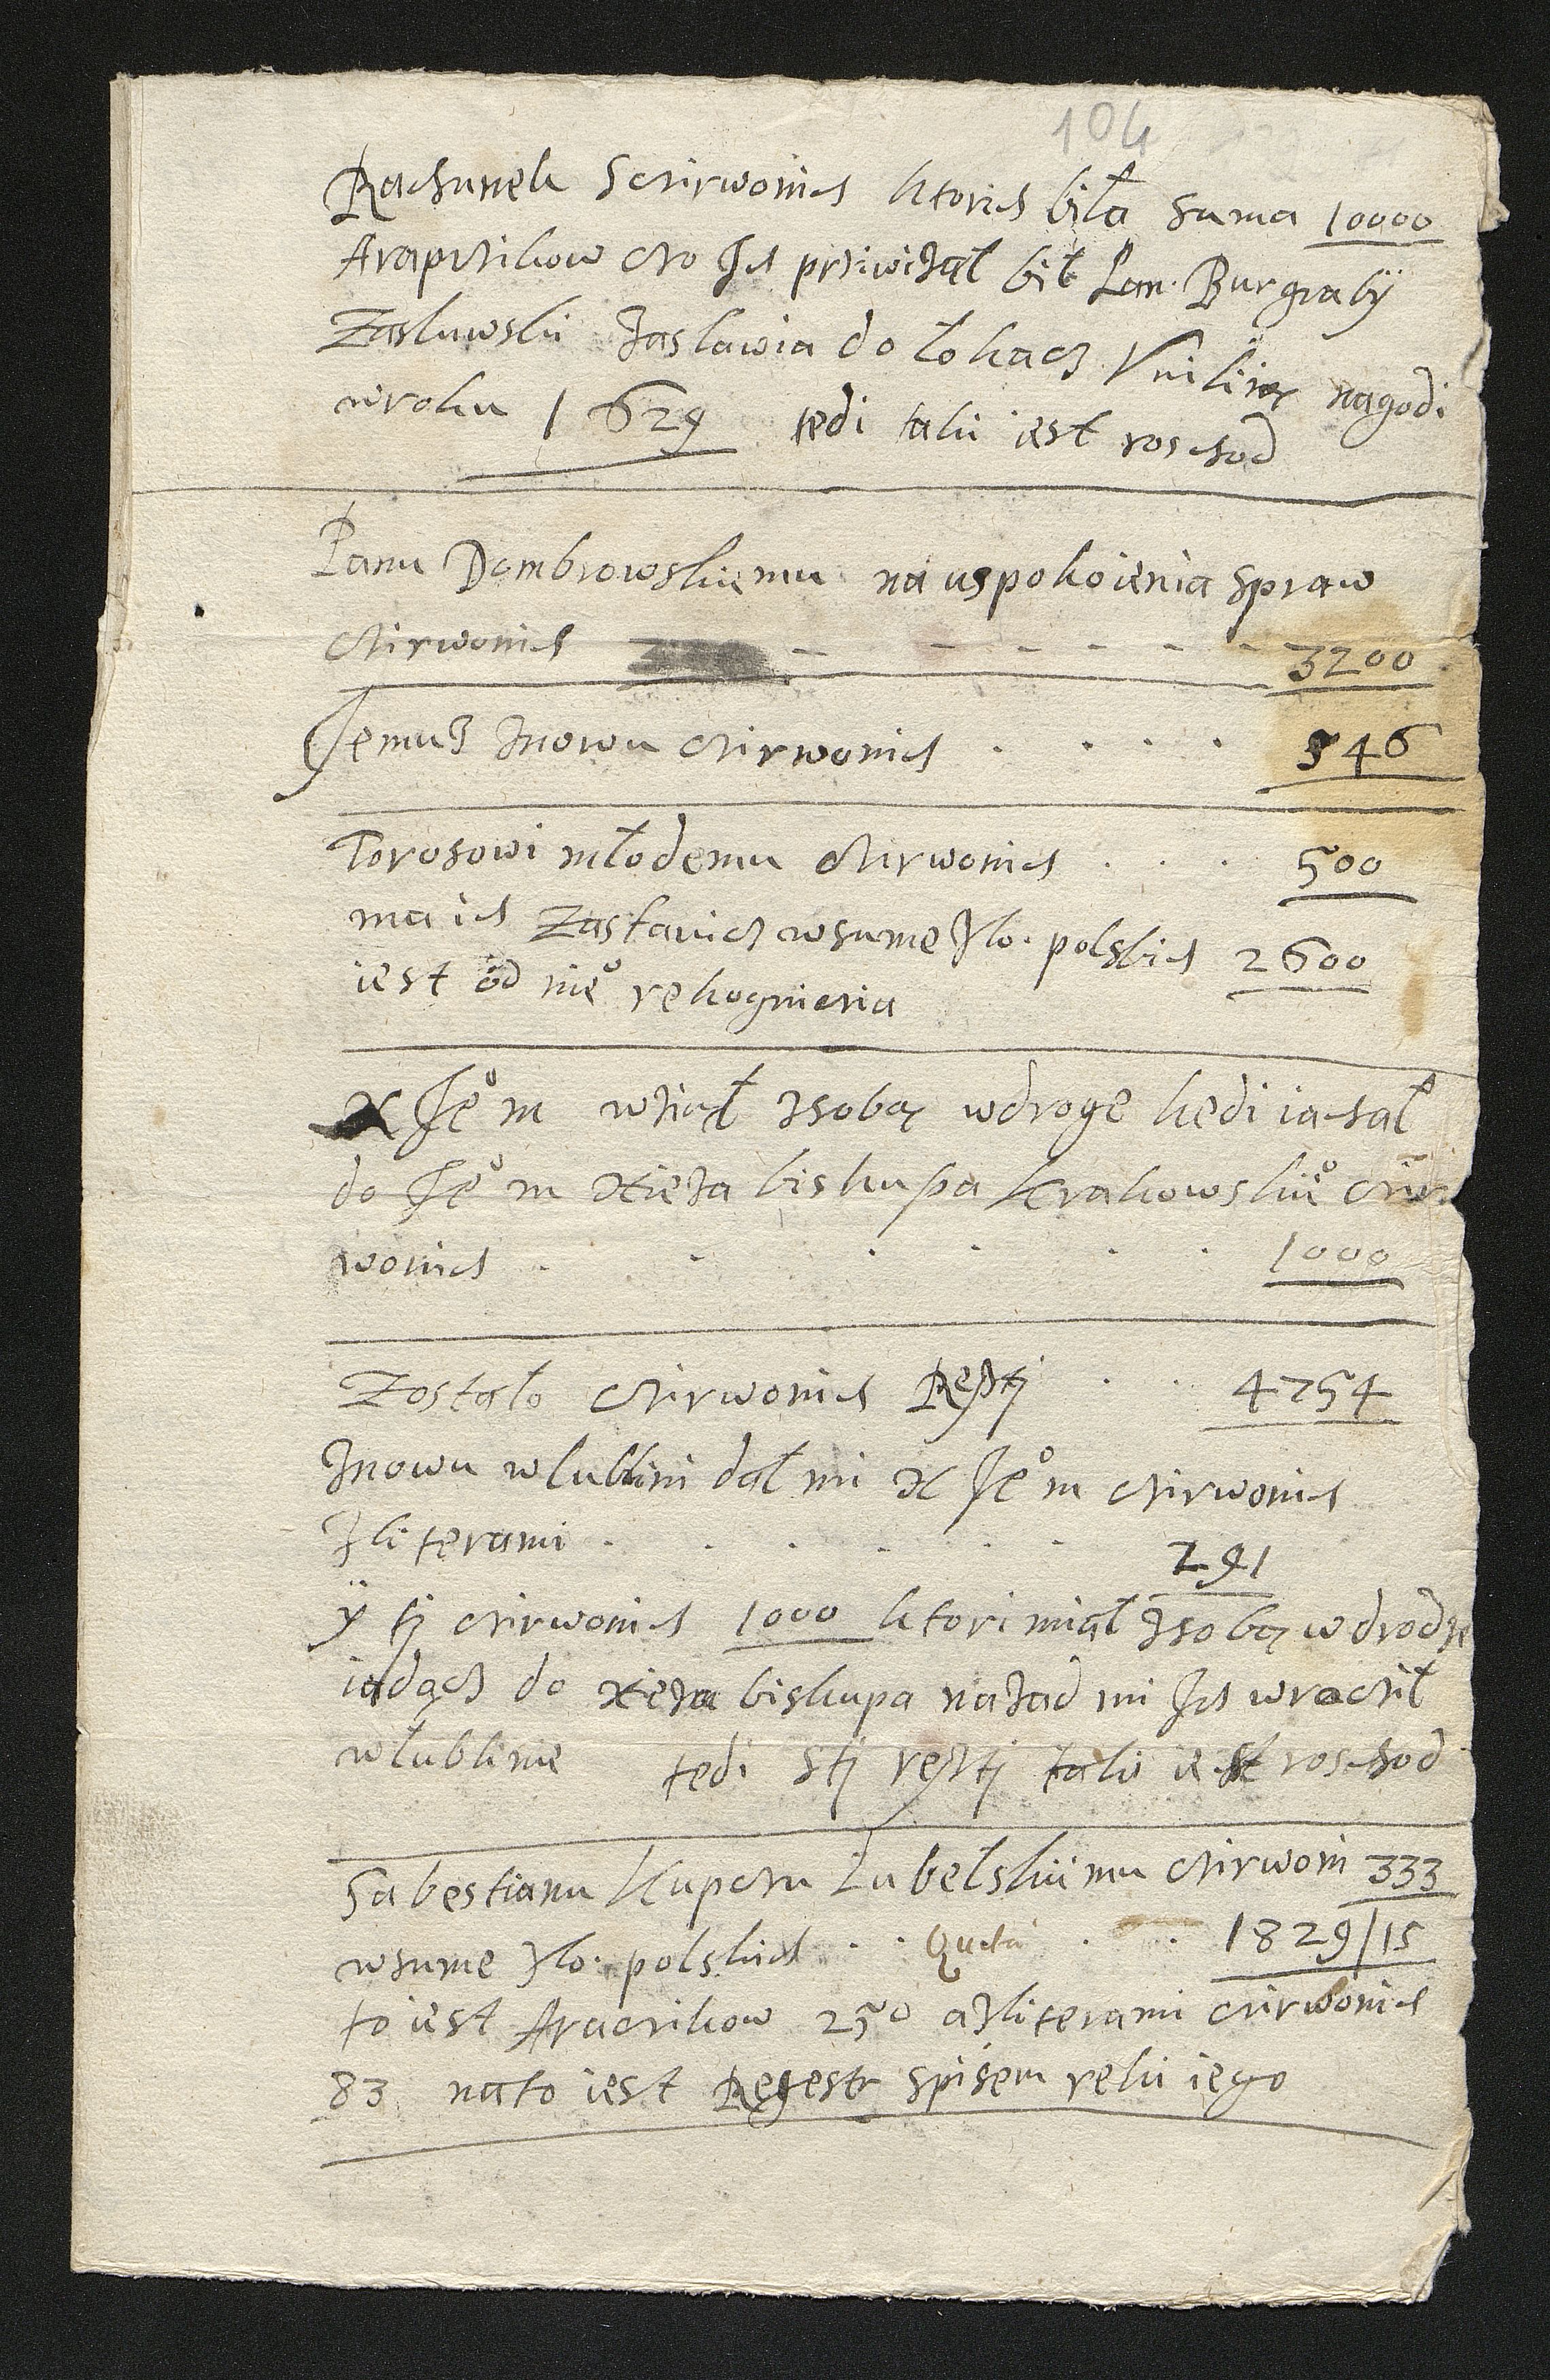 104
Rachunek sczirwonich ktorich biła suma 10000
Arapczikow czo Jch prziwiząl bił Pan Burgrabÿ
Zasluwski Zaslawia do łokacz Vniliią nagodi
wroku 1629 tedi taki iest roschod
Panu Dombrowskiemu na uspokoienia spraw
Czirwonich 3200
Jemuz znowu Czirwonich 546
Torosowi młodemu Czirwonich 500
ma ich Zastawich wsume zlo. polskich 2600
iest od nieº rekogniczia
X Jeº m wział zsobą wdroge kiedi iachał
do Jeº m xieza biskupa krakowskieº czir
wonich 1000
Zostało Czirwonich Reszti 4754
Znowu wlublini dał mi X Jeº m czirwonich
zliterami 291
ÿ ti czirwonich 1000 ktori miał zsobą wdrodze
iadącz do xieza biskupa nazad mi Jch wrocził
wlublinie tedi sti reszti taki iest roschod
Sabestianu Kupczu Lubelskiimu czirwoni 333
wsume zlo. polskich 1829/15
to iest Araczikow 250 azliterami czirwonich
83 nato iest Regestr spisem reki iego